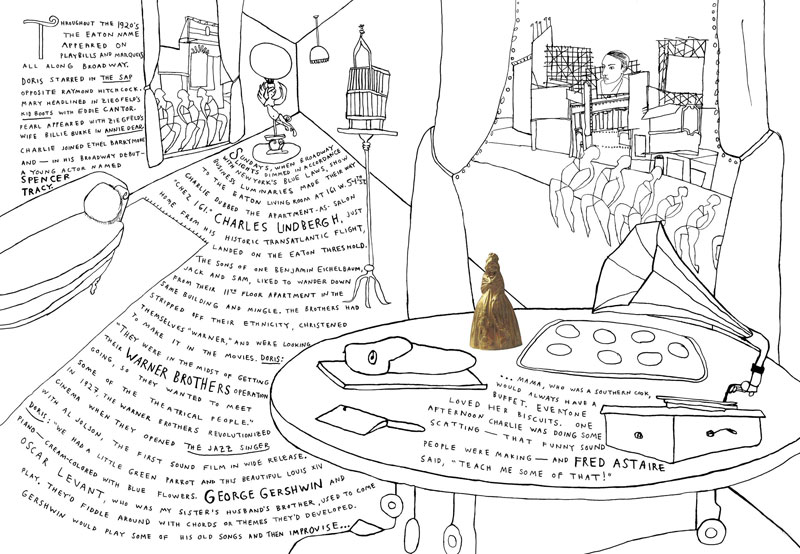 THROUGHOUT THE 1920'S
THE EATON NAME
APPEARED ON
PLAYBILLS AND MARQUEES
ALL ALONG BROADWAY.
DORIS STARRED IN THE SAP
OPPOSITE RAYMOND HITCHCOCK.
MARY HEADLINED IN ZIEGFELD'S
KID BOOTS WITH EDDIE CANTOR.
PEARL APPEARED WITH ZIEGFELD'S
WIFE BILLIE BURKE IN ANNIE DEAR.
CHARLIE JOINED ETHEL BARRYMORE
AND — IN HIS BROADWAY DEBUT —
A YOUNG ACTOR NAMED
SPENCER
TRACY.
SUNDAYS, WHEN BROADWAY
LIGHTS DIMMED IN ACCORDANCE
WITH NEW YORK'S BLUE LAWS, SHOW
BUSINESS LUMINARIES MADE THEIR WAY
TO THE EATON LIVING ROOM AT 161 W. 54TH ST.
CHARLIE DUBBED THE APARTMENT-AS-SALON
"CHEZ 161." CHARLES LINDBERGH, JUST
HOME FROM HIS HISTORIC TRANSATLANTIC FLIGHT,
LANDED ON THE EATON THRESHOLD.
THE SONS OF ONE BENJAMIN EICHELBAUM,
JACK AND SAM, LIKED TO WANDER DOWN
FROM THEIR 11TH FLOOR APARTMENT IN THE
SAME BUILDING AND MINGLE. THE BROTHERS HAD
STRIPPED OFF THEIR ETHNICITY, CHRISTENED
THEMSELVES "WARNER," AND WERE LOOKING
TO MAKE IT IN THE MOVIES. DORIS:
"THEY WERE IN THE MIDST OF GETTING
THEIR WARNER BROTHERS OPERATION
GOING, SO THEY WANTED TO MEET
SOME OF THE THEATRICAL PEOPLE."
IN 1927 THE WARNER BROTHERS REVOLUTIONIZED
CINEMA WHEN THEY OPENED THE JAZZ SINGER
WITH AL JOLSON, THE FIRST SOUND FILM IN WIDE RELEASE.
DORIS: "WE HAD A LITTLE GREEN PARROT AND THIS BEAUTIFUL LOUIS XIV
PIANO. CREAM-COLORED WITH BLUE FLOWERS. GEORGE GERSHWIN AND
OSCAR LEVANT, WHO WAS MY SISTER'S HUSBAND'S BROTHER, USED TO COME
PLAY. THEY'D FIDDLE AROUND WITH CHORDS OR THEMES THEY'D DEVELOPED.
GERSHWIN WOULD PLAY SOME OF HIS OLD SONGS AND THEN IMPROVISE...
... MAMA, WHO WAS A SOUTHERN COOK,
WOULD ALWAYS HAVE A
BUFFET. EVERYONE
LOVED HER BISCUITS. ONE
AFTERNOON CHARLIE WAS DOING SOME
SCATTING — THAT FUNNY SOUND
PEOPLE WERE MAKING — AND FRED ASTAIRE
SAID, "TEACH ME SOME OF THAT!"